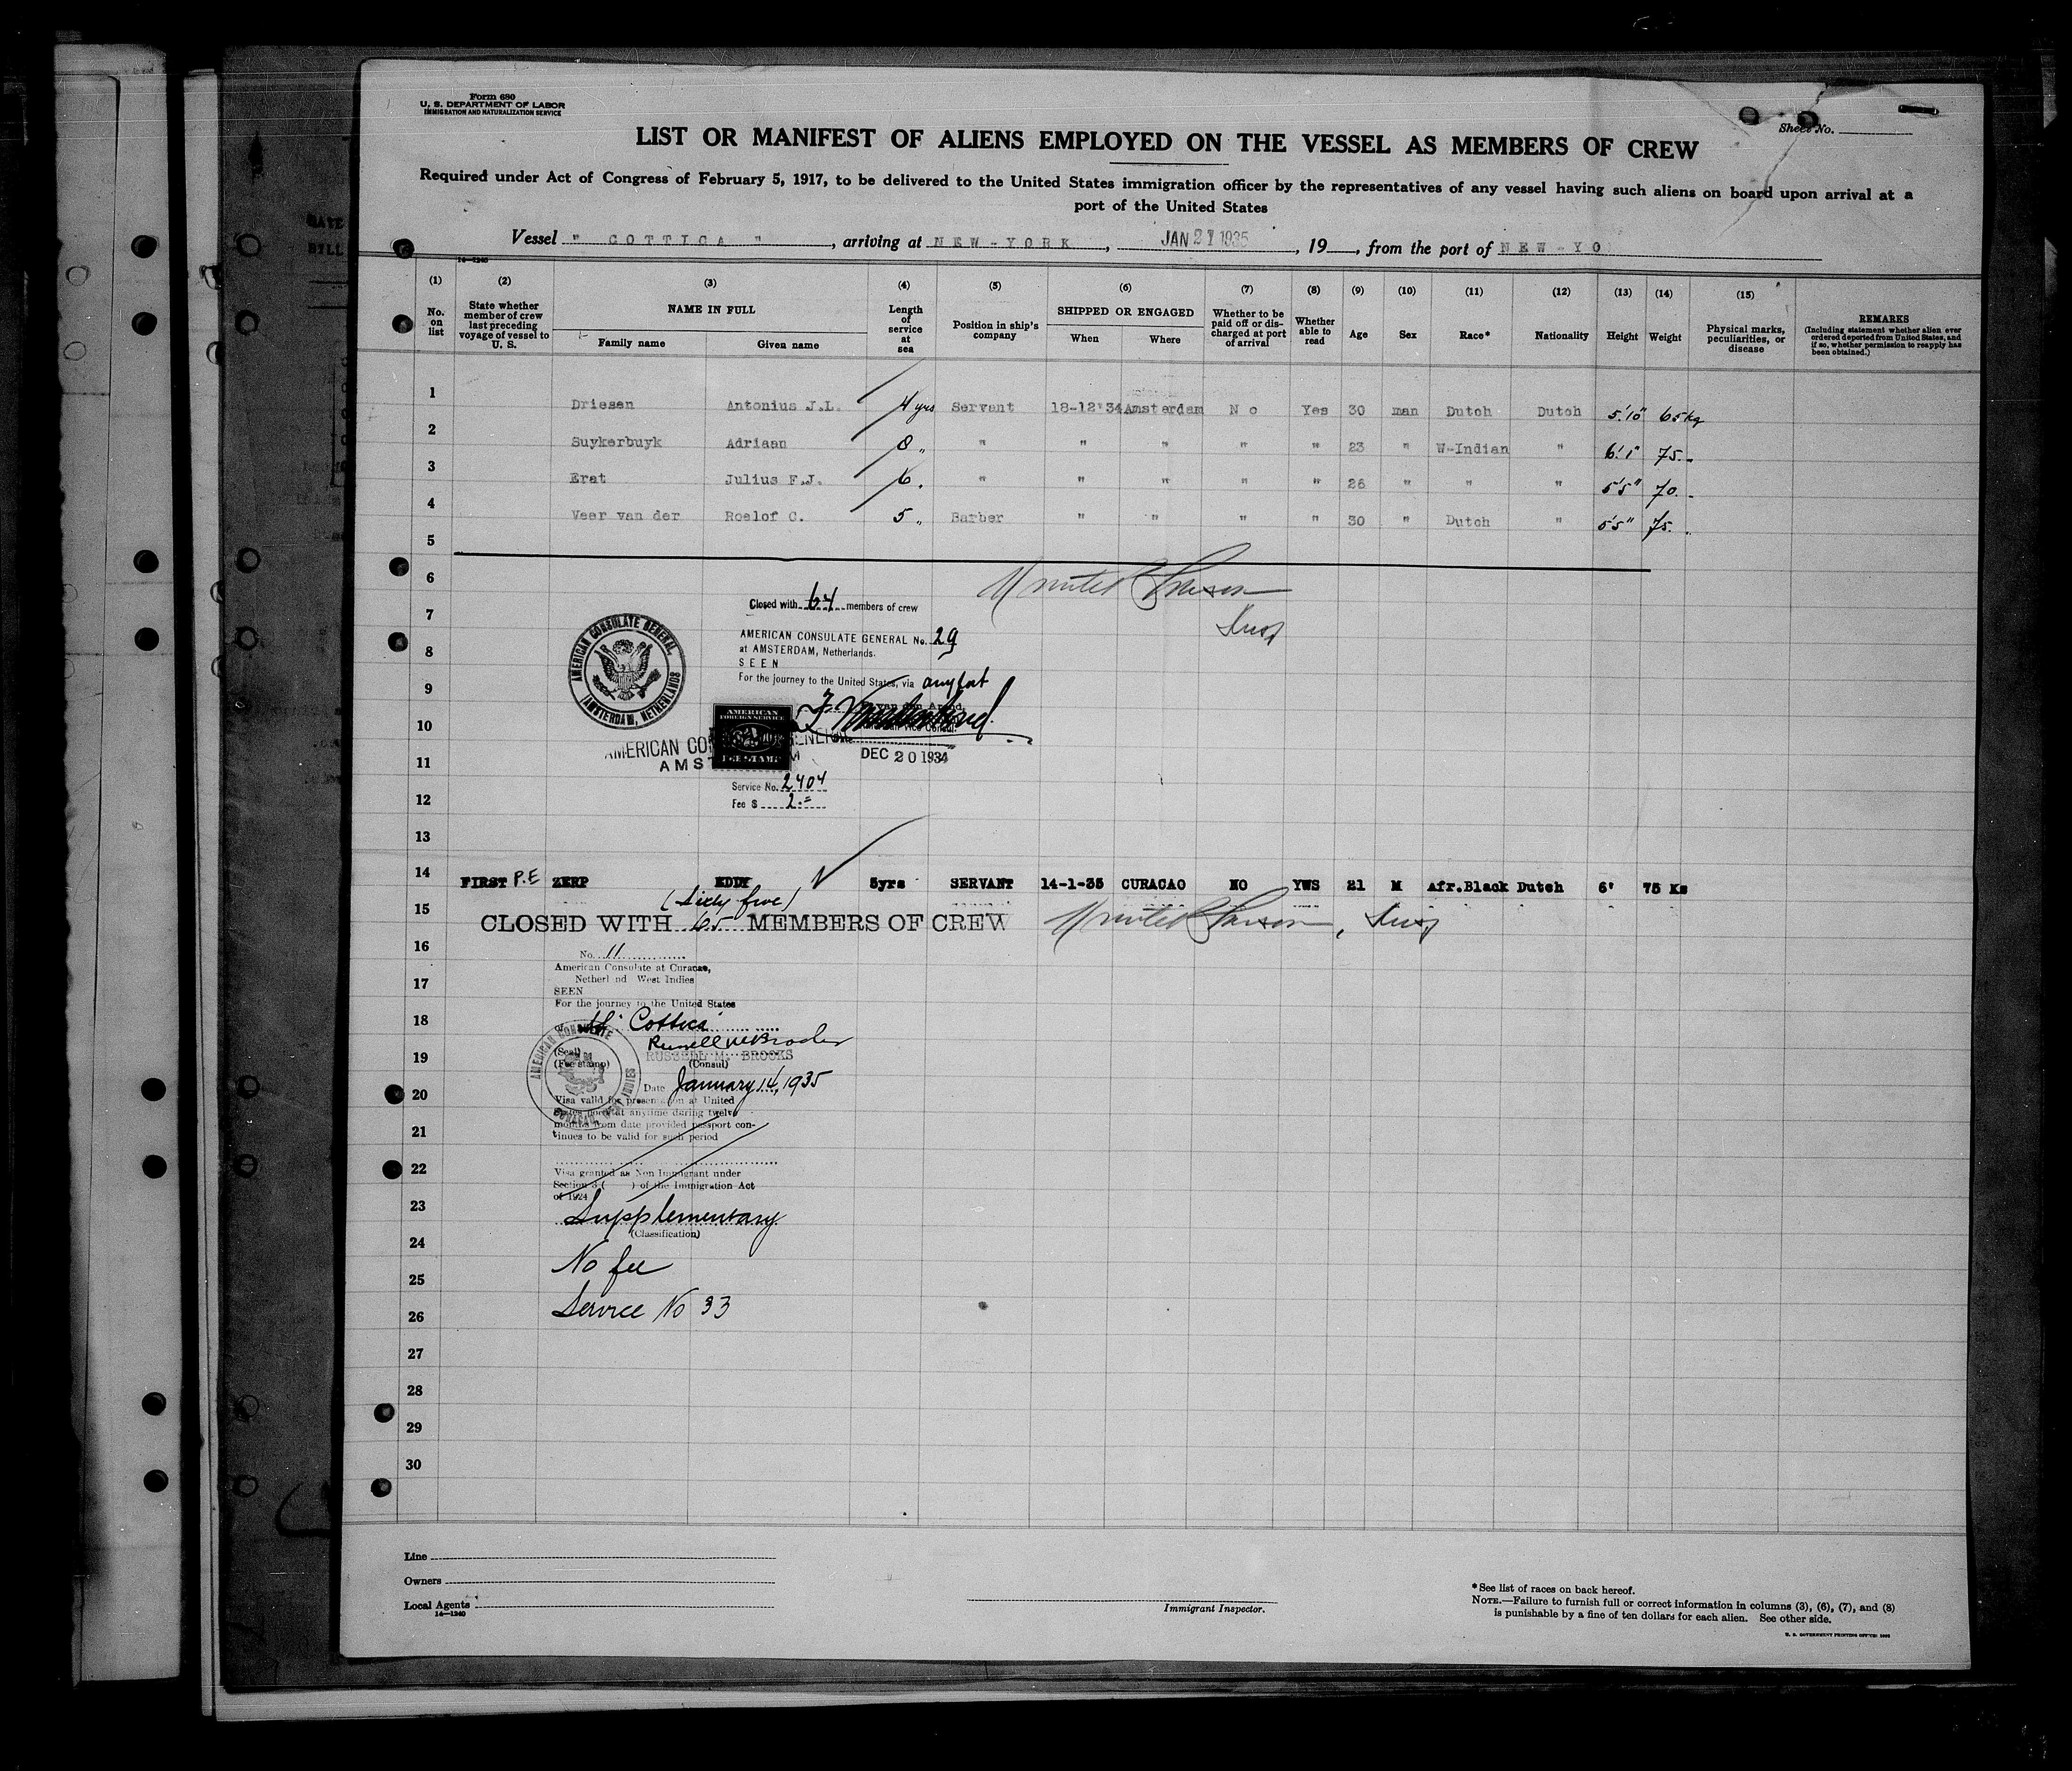 Form 680
U. S. DEPARTMENT OF LABOR
IMMIGRATION AND NATURALIZATION SERVICE
Sheet No.
LIST OR MANIFEST OF ALIENS EMPLOYED ON THE VESSEL AS MEMBERS OF CREW
Required under Act of Congress of February 5, 1917, to be delivered to the United States immigration officer by the representatives of any vessel having such aliens on board upon arrival at a
port of the United States
Vessel " COTTICA ", arriving at NEW-YORK, JAN 21 1935, 19, from the port of NEW-YO
14—1240
(1) (2) (3) (4) (5) (6) (7) (8) (9) (10) (11) (12) (13) (14) (15)
No. on list
State whether member of crew last preceding voyage of vessel to U. S.
NAME IN FULL
Family name Given name
Length of service at sea
Position in ship's company
SHIPPED OR ENGAGED
When Where
Whether to be paid off or discharged at port of arrival
Whether able to read
Age Sex Race* Nationality Height Weight
Physical marks, peculiarities, or disease
REMARKS
(Including statement whether alien ever ordered deported from United States, and if so, whether permission to reapply has been obtained.)
1 Driesen Antonius J.L. 4 yrs Servant 18-12'34 Amsterdam No Yes 30 man Dutch Dutch 5'.10" 65 kg
2 Suykerbuyk Adriaan 8 " " " " " " 23 " W-Indian " 6'.1" 75.-
3 Erat Julius F.J. 6. " " " " " 26 " " " 5'5" 70.-
4 Veer van der Roelof C. 5 " Barber " " " " 30 " Dutch " 5'5" 75.
5
6
7
8
9
10
11
12
13
Closed with 64 members of crew
Insp
AMERICAN CONSULATE GENERAL No. 29
at AMSTERDAM, Netherlands.
SEEN
For the journey to the United States, via any port
AMERICAN CONSULATE GENERAL,
AMSTERDAM, NETHERLANDS
AMERICAN
FOREIGN SERVICE
FEE STAMP
DEC 20 1934
Service No. 2404
Fee $ 2.=
14 FIRST P.E ZERP EDDY 5yrs SERVANT 14-1-35 CURACAO NO YWS 21 M Afr.Black Dutch 6' 75 Ks
(Sixty five)
15 CLOSED WITH 65 MEMBERS OF CREW
, Insp
16
No. 11
American Consulate at Curacao,
17 Netherl nd West Indies
SEEN
For the journey to the United States
18
Cottica
Russell M Brooks
19 (Seal) RUSSELL M. BROOKS
(Fee stamp) (Consul)
AMERICAN CONSULATE
Date January 14, 1935
20 Visa valid for presen a on at United
States ports at anytime during twelve
21 months from date provided passport con-
tinues to be valid for such period
22 Visa granted as Non Immigrant under
Section 3 ( ) of the Immigration Act
of 1924
23 Supplementary
(Classification)
24
No fee
25
Service No 33
26
27
28
29
30
Line
Owners
Local Agents
14—1240
Immigrant Inspector.
*See list of races on back hereof.
NOTE.—Failure to furnish full or correct information in columns (3), (6), (7), and (8)
is punishable by a fine of ten dollars for each alien. See other side.